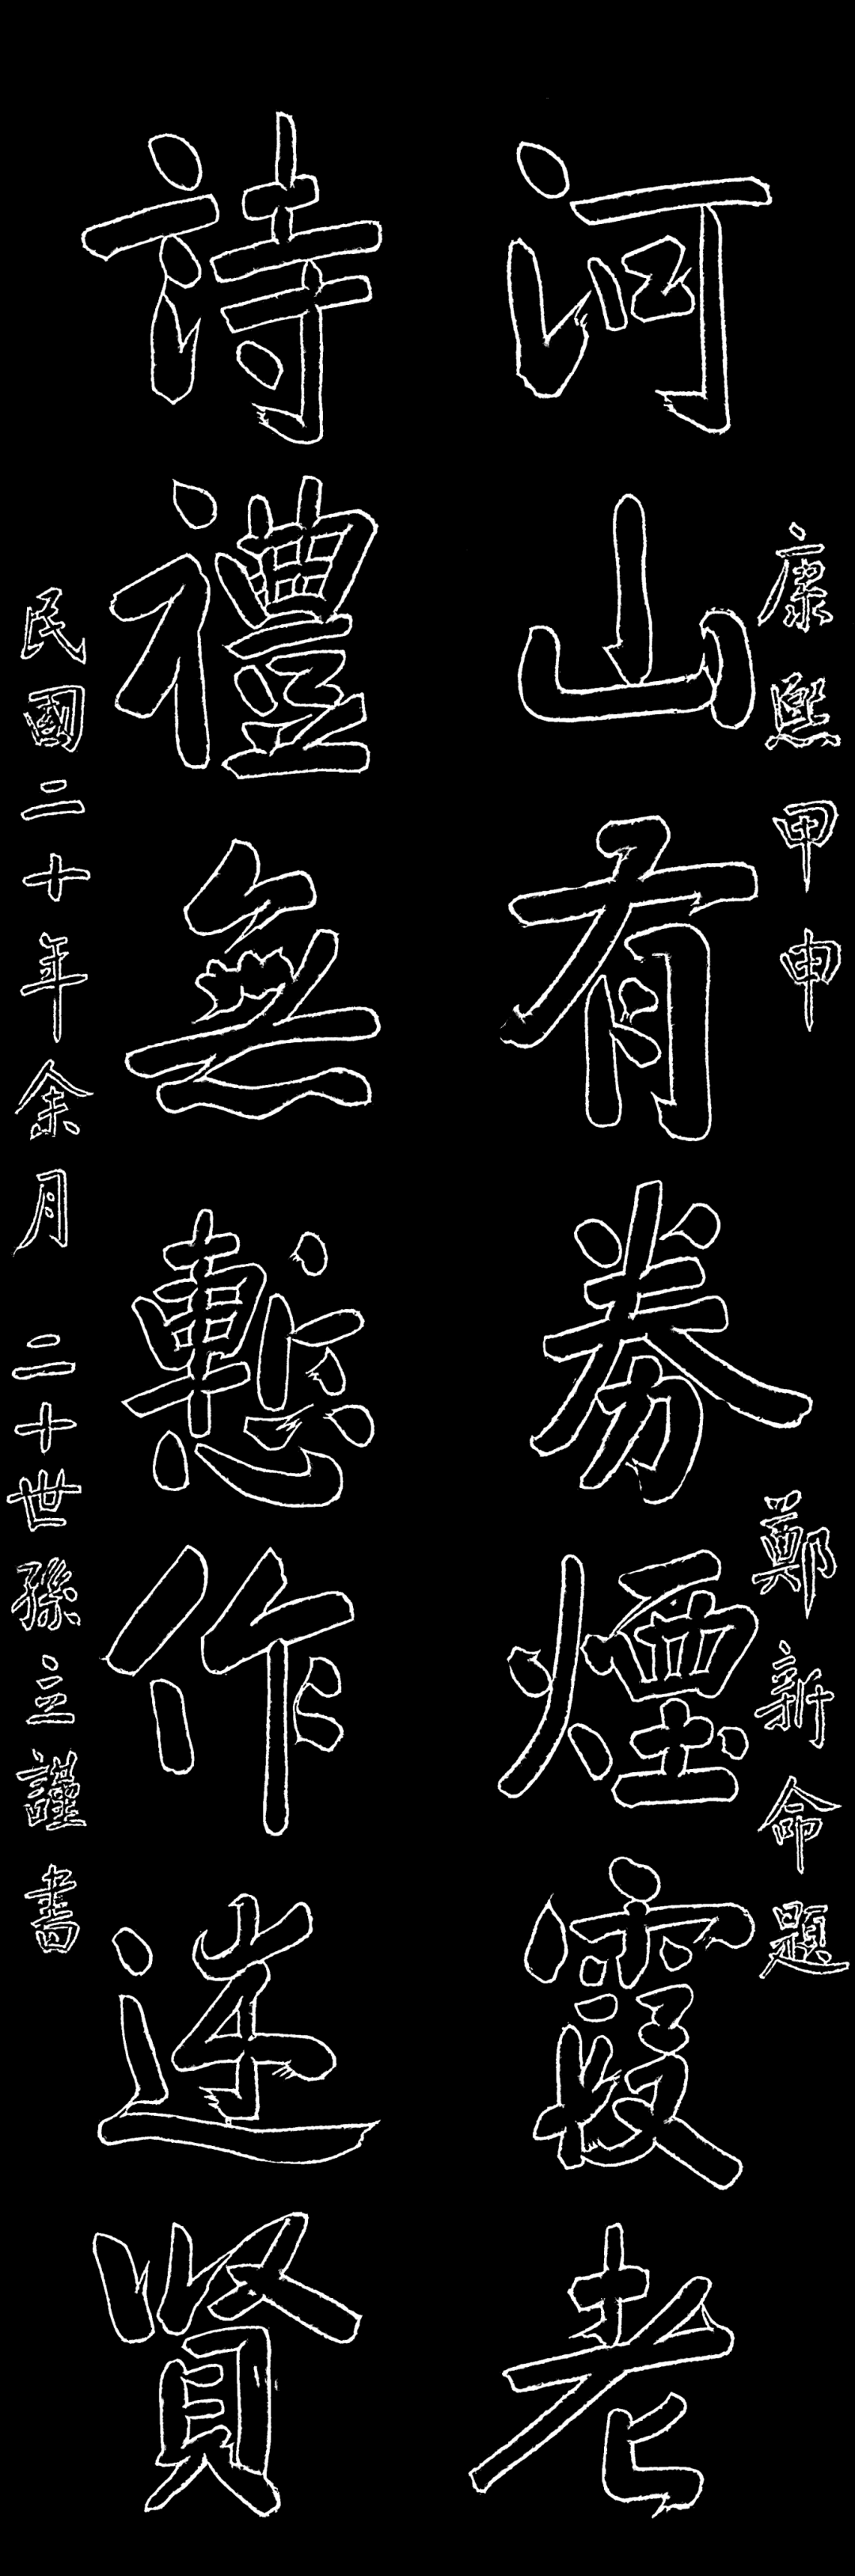 康熙甲申 鄭新命題
河山有劵煙霞老
詩禮無慙作述賢
民國二十年余月 二十世孫立謹書